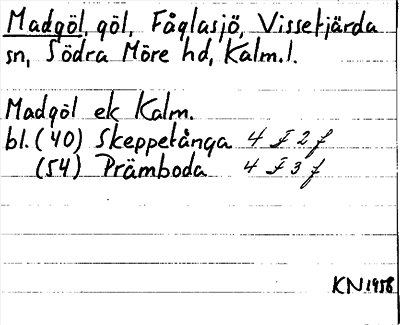 Madgöl, göl, Fåglasjö, Vissefjärda
sn, Södra Möre hd, Kalm.l.
Madgöl ek Kalm.
bl. (40) Skeppetånga 4 F 2 f
(54) Främboda 4 F 3 f
KN 1958